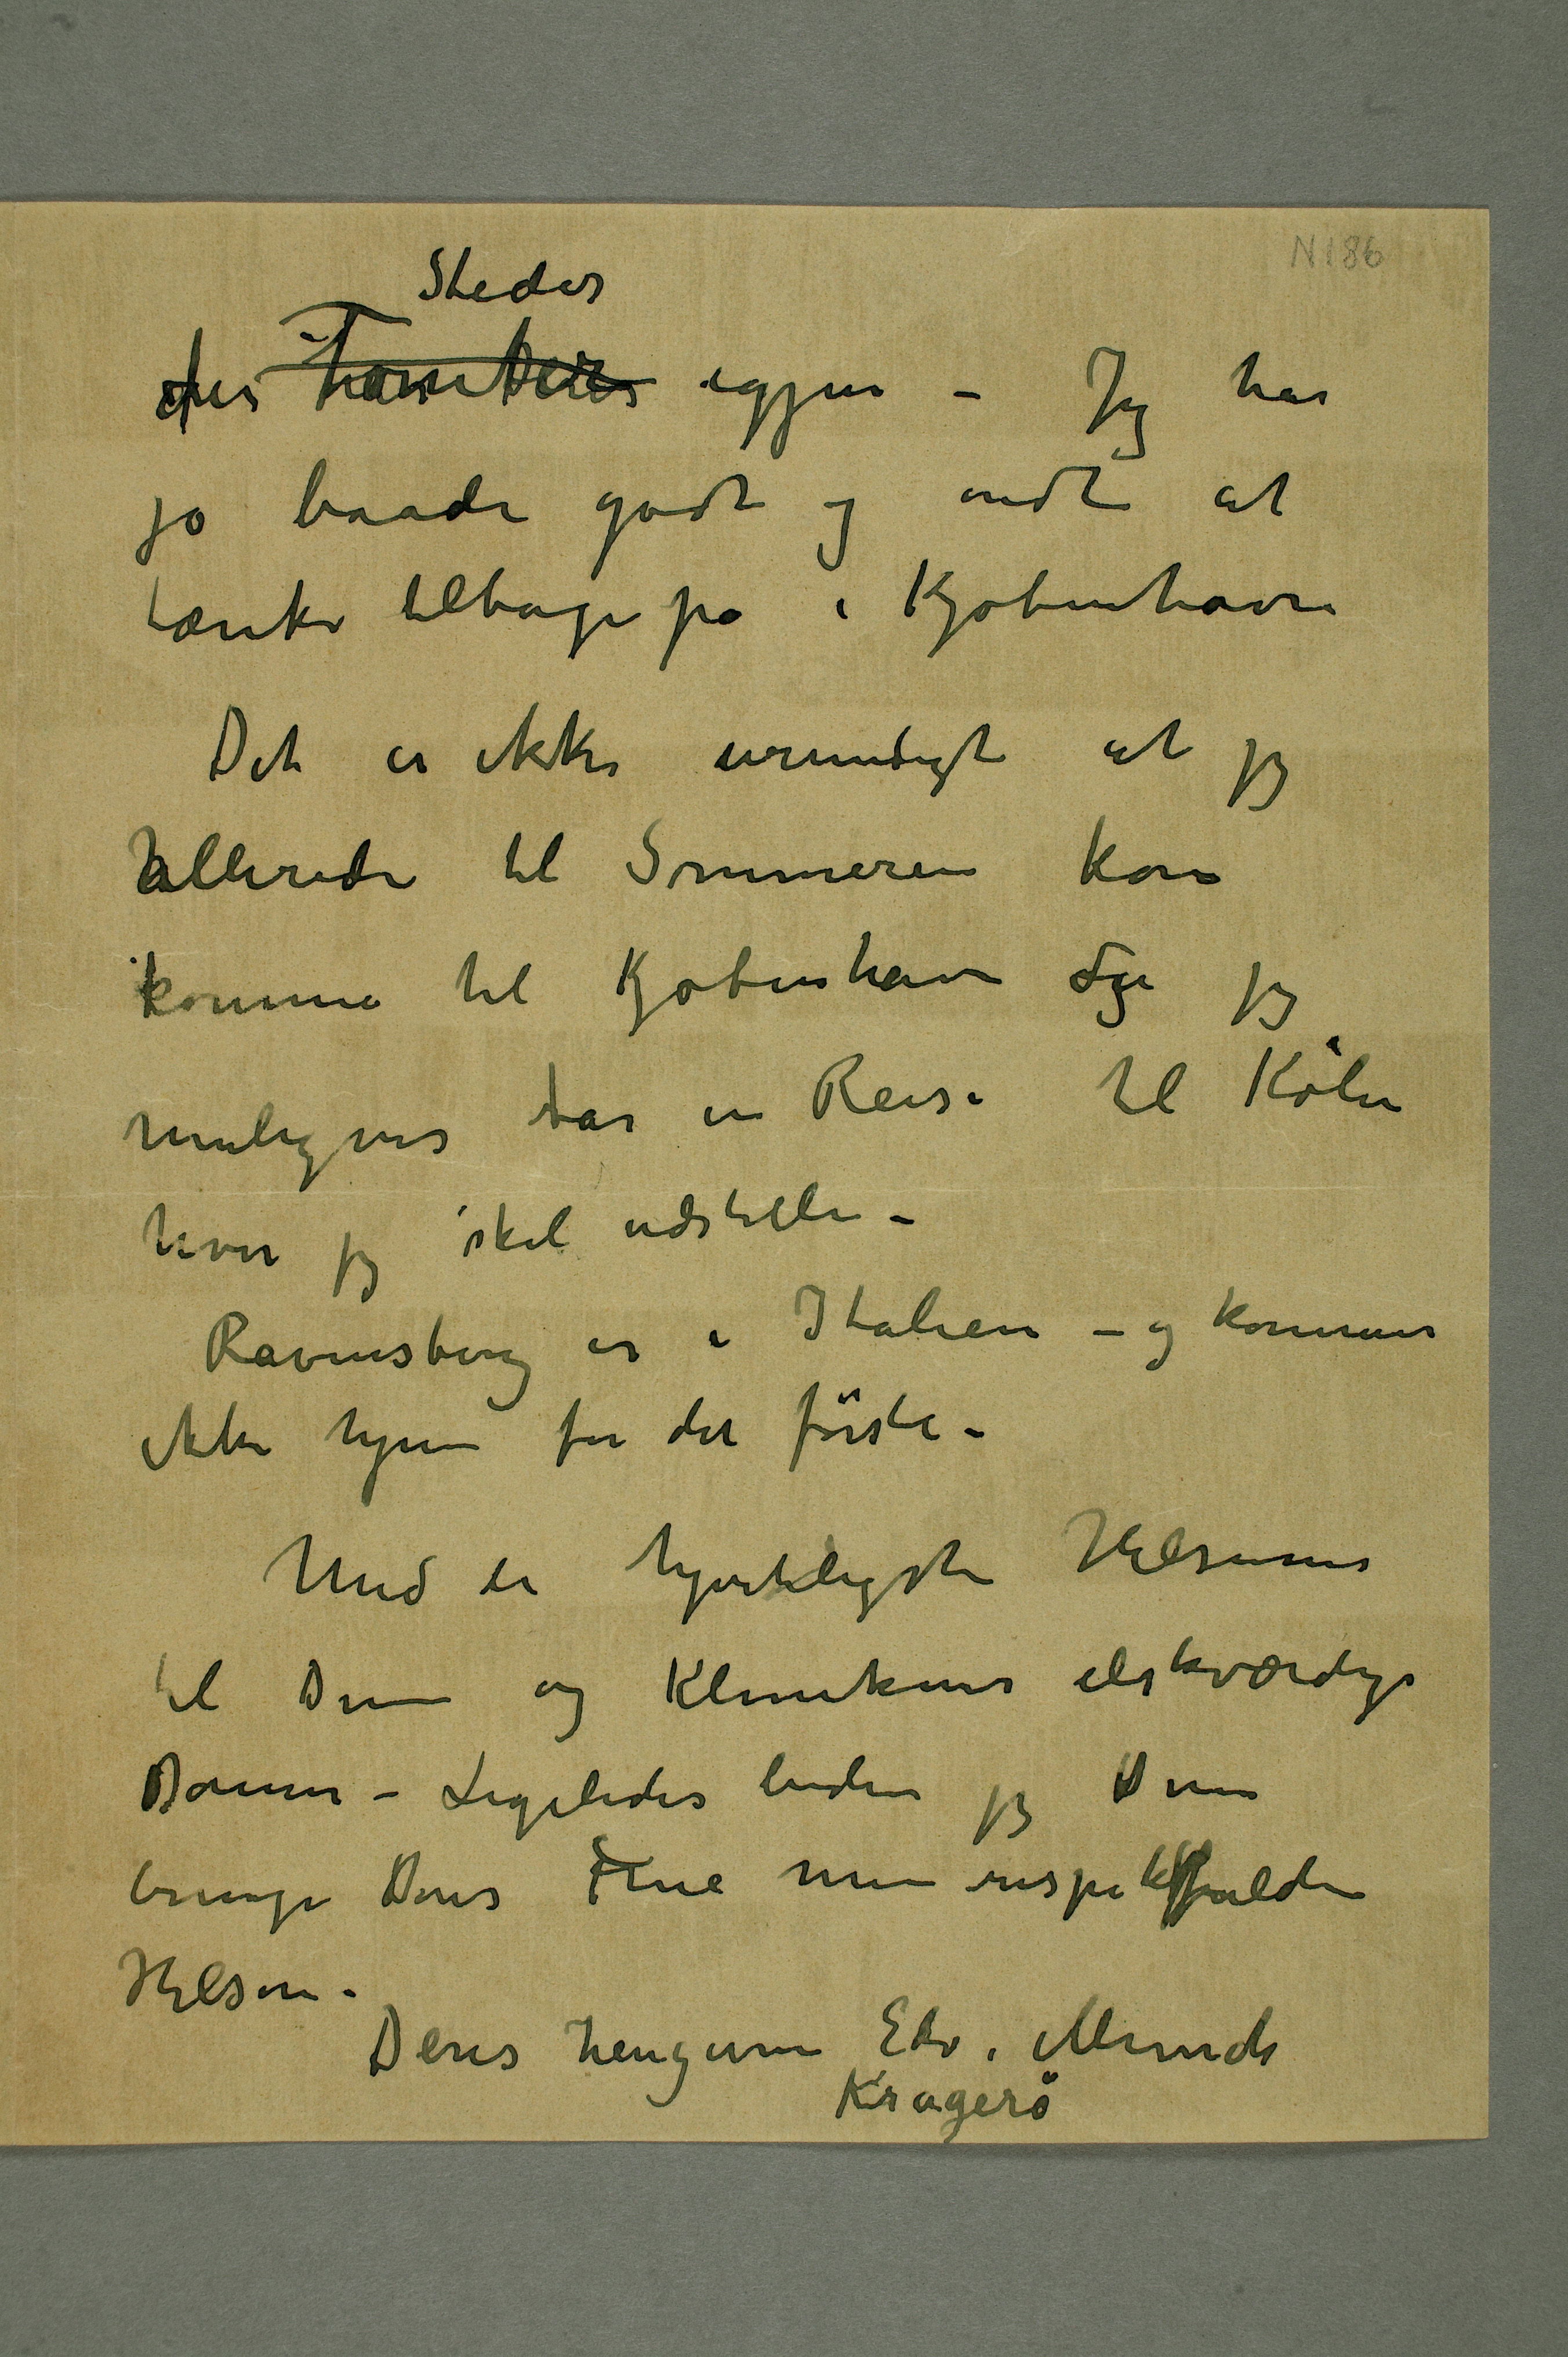 N 186
Steder
des Tanker igjen – Jeg har
jo baade godt og ondt at
tænke tilbage på i Kjøbenhavn
Det er ikke umuligt at jeg
allerede til Sommeren kan
komme til Kjøbenhavn da jeg
muligvis tar en Reise til Köln
hvor jeg skal udstille –
Ravensberg er i Italien – og kommer
ikke hjem for det förste –
Med de hjerteligste Hilsener
til Dem og Klinikens elskværdige
Damer – Ligeledes beder jeg Dem
bringe Deres Frue min respektfulde
Hilsen.
Deres hengivne Edv. Munch
Kragerö